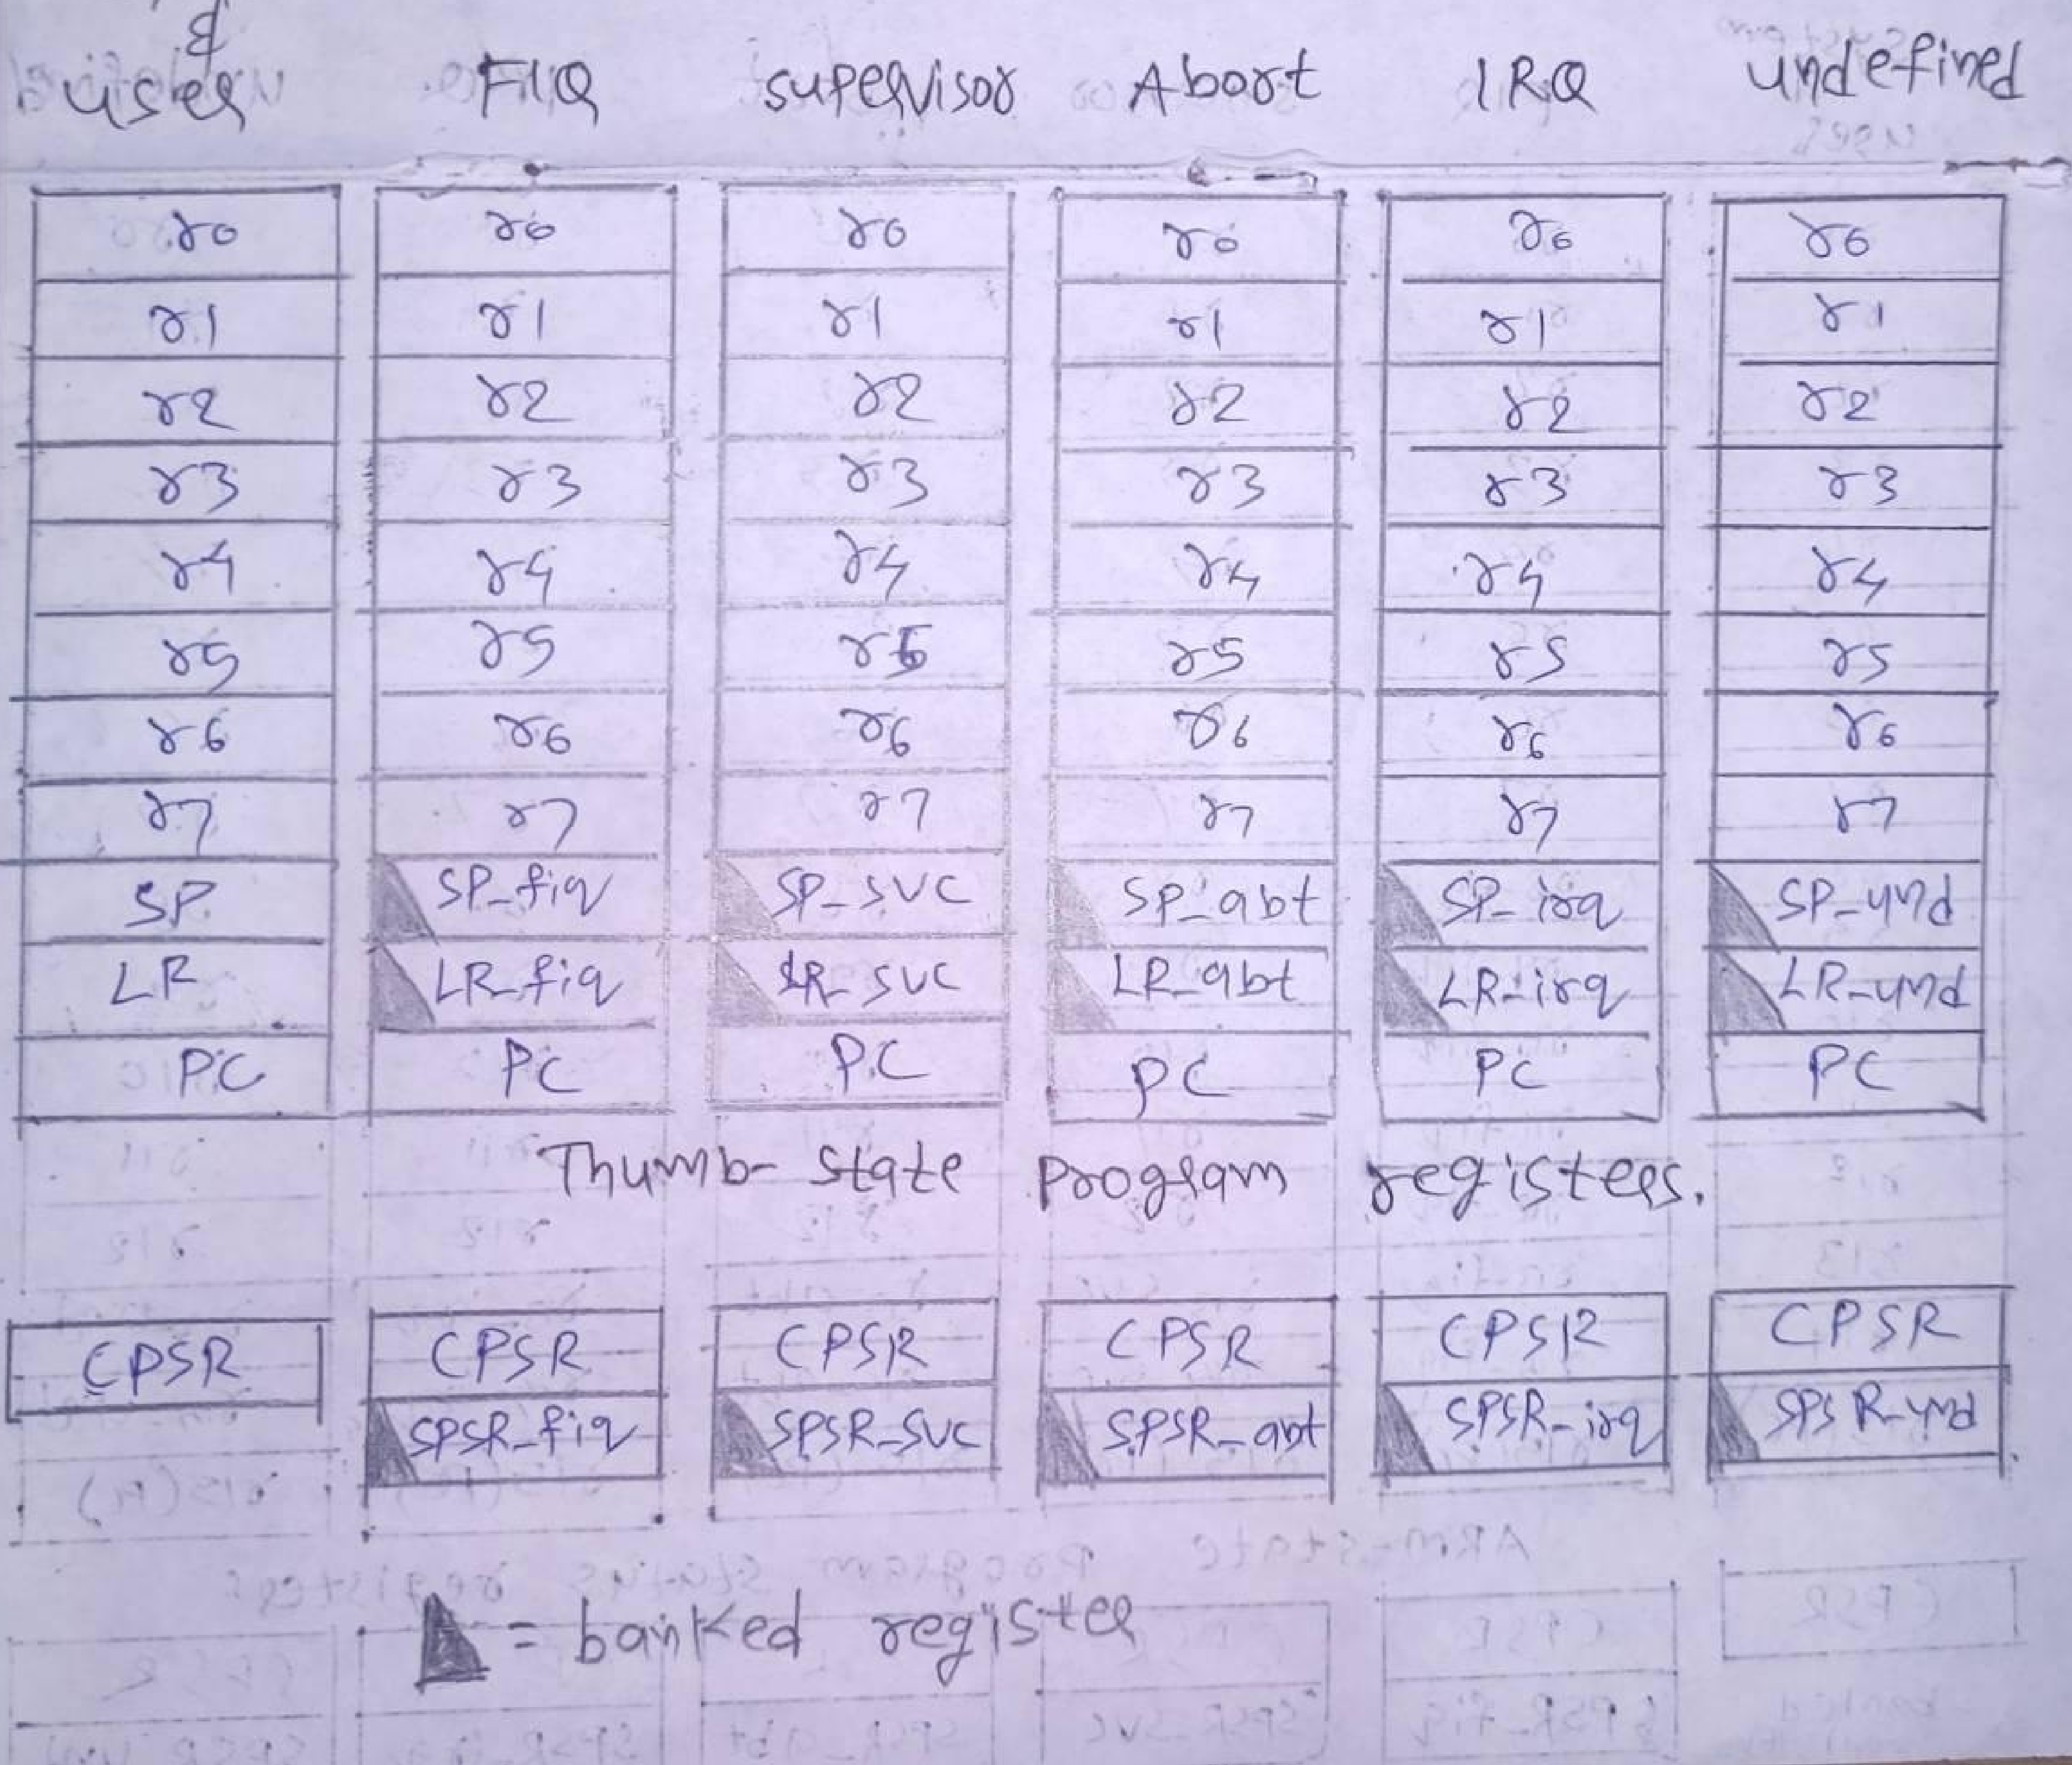 &
user FIQ supervisor Abort IRQ undefined
r0 r0 r0 r0 r0 r0
r1 r1 r1 r1 r1 r1
r2 r2 r2 r2 r2 r2
r3 r3 r3 r3 r3 r3
r4 r4 r4 r4 r4 r4
r5 r5 r5 r5 r5 r5
r6 r6 r6 r6 r6 r6
r7 r7 r7 r7 r7 r7
SP SP_fiq SP_svc SP_abt SP_irq SP_und
LR LR_fiq LR_svc LR_abt LR_irq LR_und
PC PC PC PC PC PC
Thumb-state program registers.
CPSR CPSR CPSR CPSR CPSR CPSR
SPSR_fiq SPSR_svc SPSR_abt SPSR_irq SPSR_und
= banked register